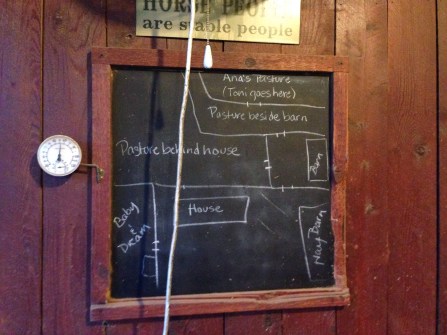 HORSE PEOPLE
are stable people
Ana's Pasture
(Toni goes here)
Pasture beside barn
Pasture behind house
Barn
House
Baby
&
Dream
Hay Barn